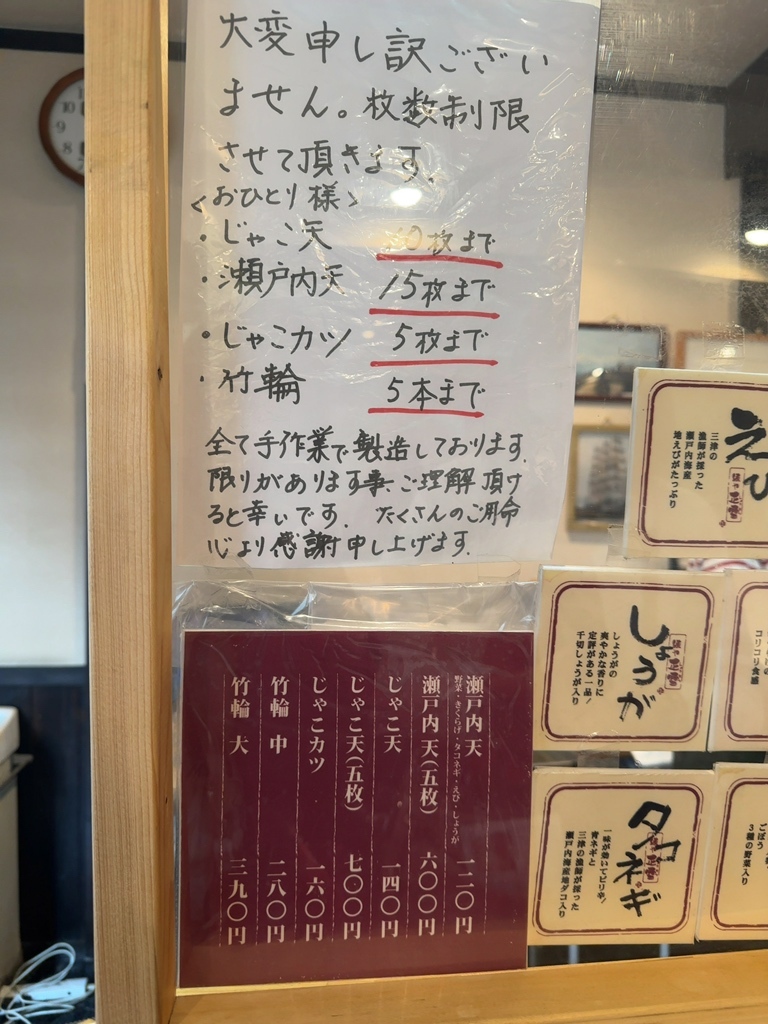 大変申し訳ござい
ません。枚数制限
させて頂きます。
<おひとり様>
・じゃこ天 10枚まで
・瀬戸内天 15枚まで
・じゃこカツ 5枚まで
・竹輪 5本まで
全て手作業で製造しております。
限りがあります事、ご理解頂け
ると幸いです。たくさんのご用命
心より感謝申し上げます。
瀬戸内天 一二〇円
野菜・きくらげ・タコネギ・えび・しょうが
瀬戸内天(五枚) 六〇〇円
じゃこ天 一四〇円
じゃこ天(五枚) 七〇〇円
じゃこカツ 一六〇円
竹輪 中 二八〇円
竹輪 大 三九〇円
えび
三津の
漁師が採った
瀬戸内海産
地えびがたっぷり
しょうが
しょうがの
爽やかな香りに
定評がある一品!
千切しょうが入り
コリコリ食感
タコネギ
一味が効いてピリ辛!
青ネギと
三津の漁師が採った
瀬戸内海産地ダコ入り
ごぼう
3種の野菜入り
10
9
8